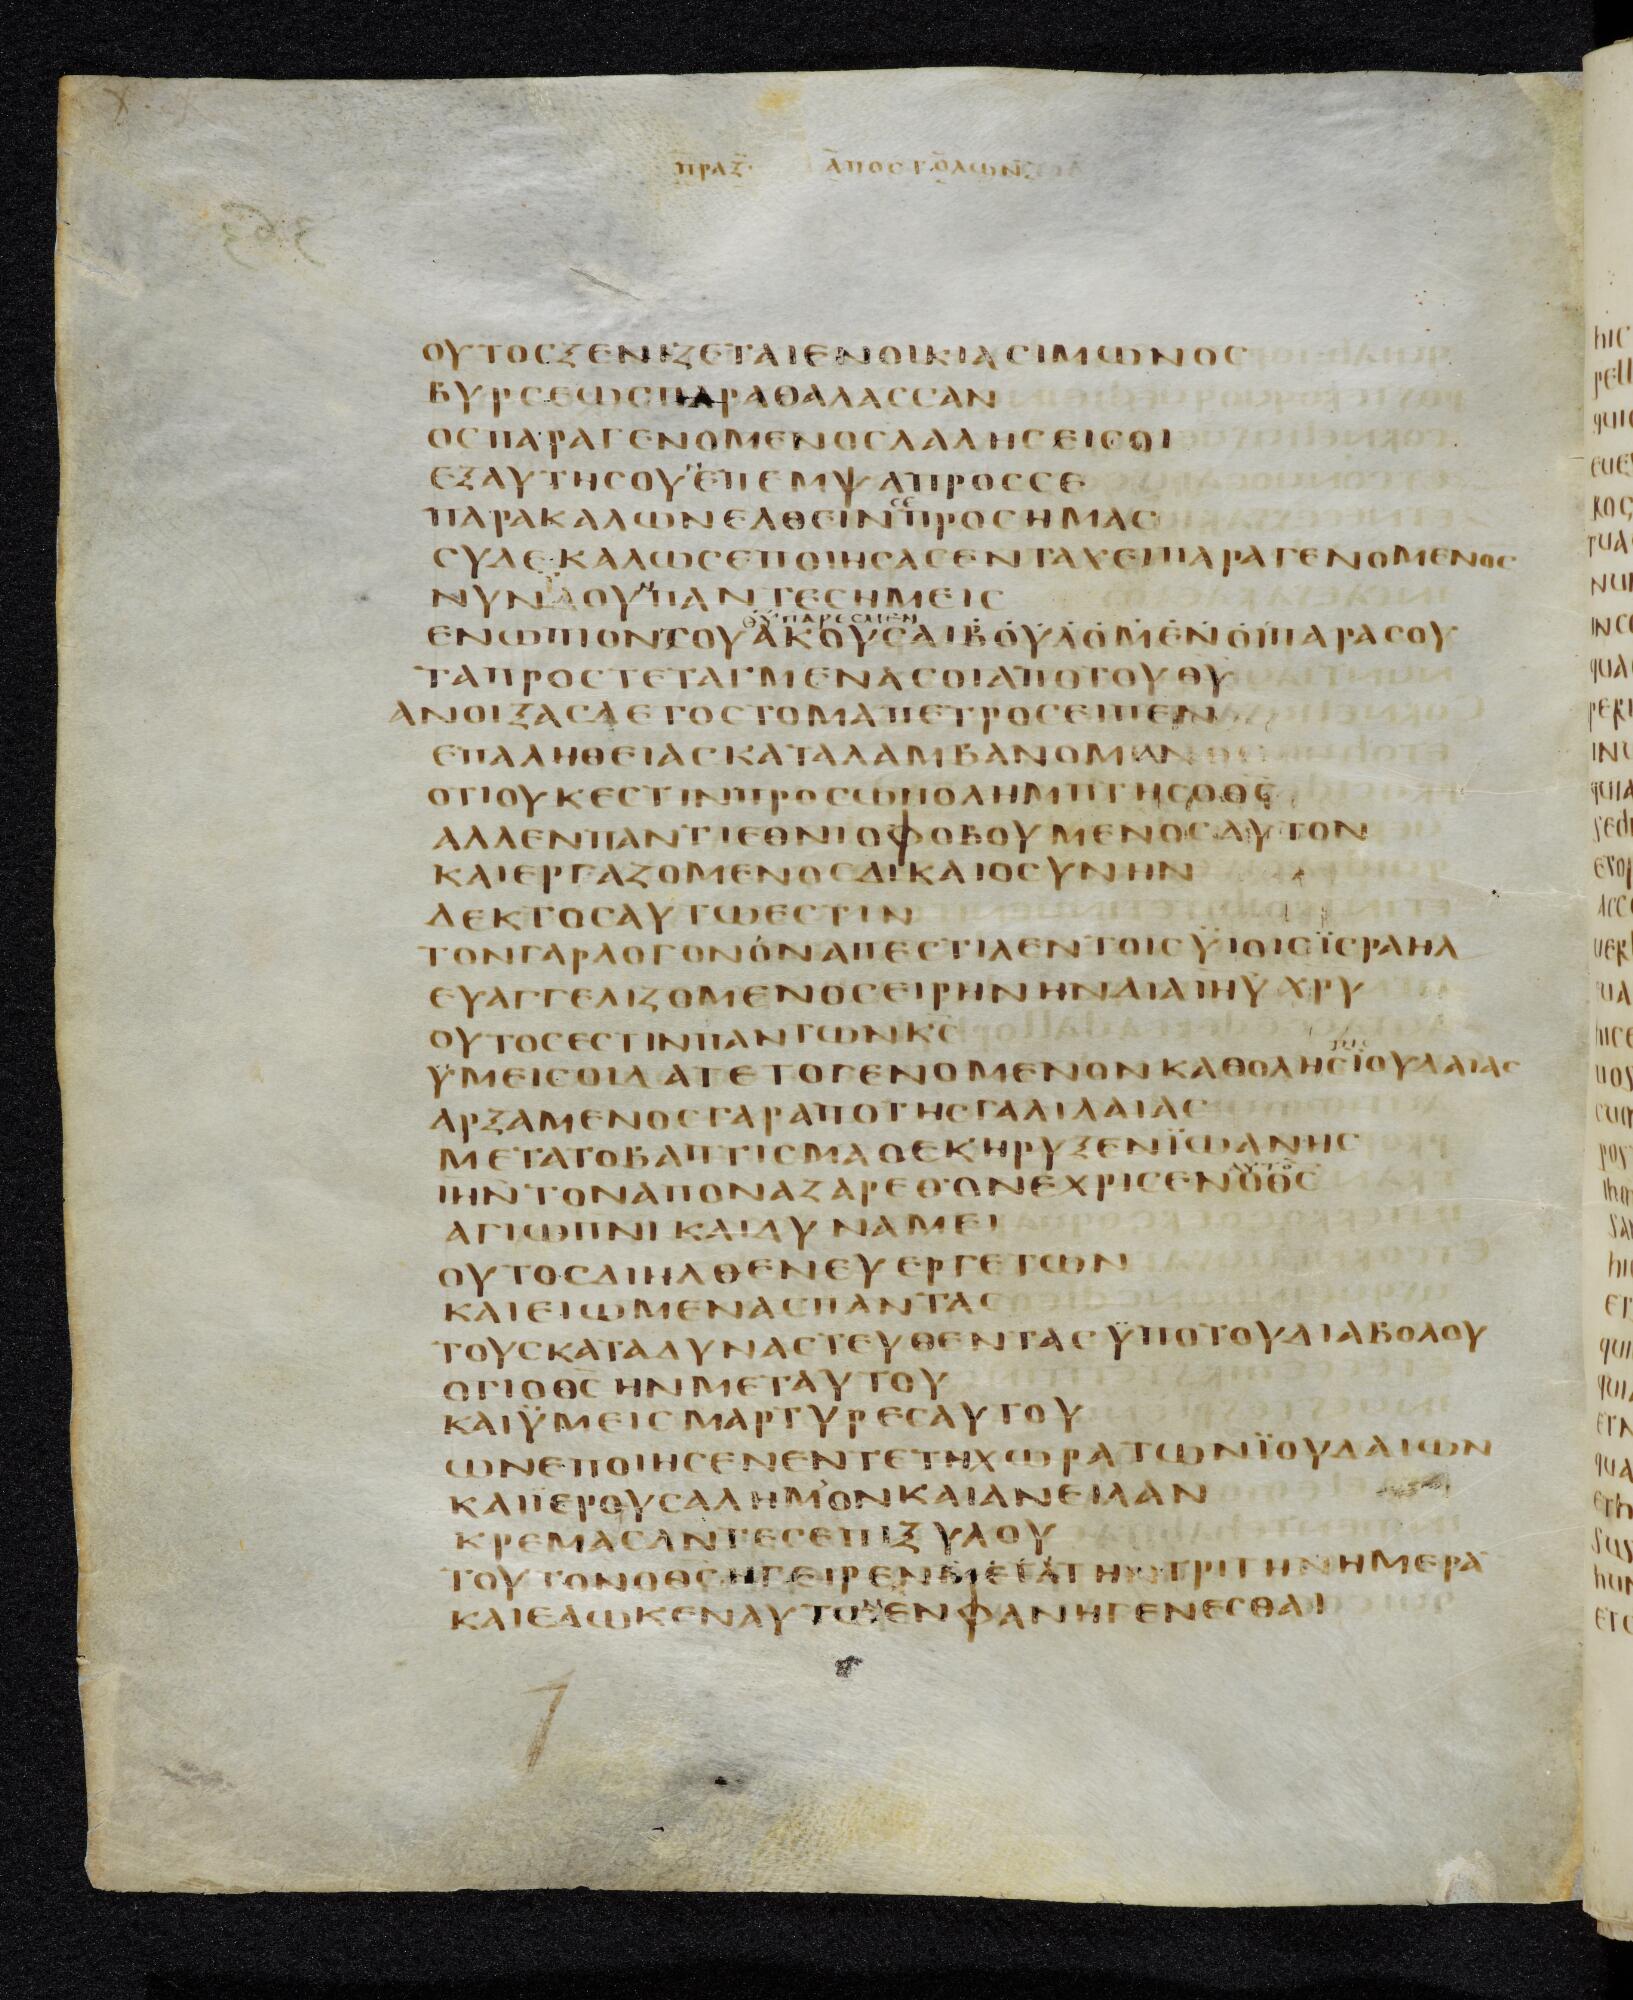 ΠΡΑΞ· ΑΠΟΣΤΟΛΩΝ
ΟΥΤΟΣΞΕΝΙΖΕΤΑΙΕΝΟΙΚΙΑΣΙΜΩΝΟΣ
ΒΥΡΣΕΩΣΠΑΡΑΘΑΛΑΣΣΑΝ
ΟΣΠΑΡΑΓΕΝΟΜΕΝΟΣΛΑΛΗΣΕΙΣΟΙ
ΕΞΑΥΤΗΣΟΥΝΕΠΕΜΨΑΠΡΟΣΣΕ
ΠΑΡΑΚΑΛΩΝΕΛΘΕΙΝΠΡΟΣΗΜΑΣ
ΣΥΔΕΚΑΛΩΣΕΠΟΙΗΣΑΣΕΝΤΑΧΕΙΠΑΡΑΓΕΝΟΜΕΝΟΣ
ΝΥΝΙΔΟΥΠΑΝΤΕΣΗΜΕΙΣ
ΕΝΩΠΙΟΝΣΟΥΑΚΟΥΣΑΙΒΟΥΛΟΜΕΝΟΙΠΑΡΑΣΟΥ
ΤΑΠΡΟΣΤΕΤΑΓΜΕΝΑΣΟΙΑΠΟΤΟΥΘΥ
ΑΝΟΙΞΑΣΔΕΤΟΣΤΟΜΑΠΕΤΡΟΣΕΙΠΕΝ
ΕΠΑΛΗΘΕΙΑΣΚΑΤΑΛΑΜΒΑΝΟΜΑΝ
ΟΤΙΟΥΚΕΣΤΙΝΠΡΟΣΩΠΟΛΗΜΠΤΗΣΟΘΣ
ΑΛΛΕΝΠΑΝΤΙΕΘΝΙΟΦΟΒΟΥΜΕΝΟΣΑΥΤΟΝ
ΚΑΙΕΡΓΑΖΟΜΕΝΟΣΔΙΚΑΙΟΣΥΝΗΝ
ΔΕΚΤΟΣΑΥΤΩΕΣΤΙΝ
ΤΟΝΓΑΡΛΟΓΟΝΟΝΑΠΕΣΤΙΛΕΝΤΟΙΣΫΙΟΙΣΪΣΡΑΗΛ
ΕΥΑΓΓΕΛΙΖΟΜΕΝΟΣΕΙΡΗΝΗΝΔΙΑΙΗΥΧΡΥ
ΟΥΤΟΣΕΣΤΙΝΠΑΝΤΩΝΚΣ
ΫΜΕΙΣΟΙΔΑΤΕΤΟΓΕΝΟΜΕΝΟΝΚΑΘΟΛΗΣΪΟΥΔΑΙΑΣ
ΑΡΞΑΜΕΝΟΣΓΑΡΑΠΟΤΗΣΓΑΛΙΛΑΙΑΣ
ΜΕΤΑΤΟΒΑΠΤΙΣΜΑΟΕΚΗΡΥΞΕΝΪΩΑΝΗΣ
ΙΗΝΤΟΝΑΠΟΝΑΖΑΡΕΘ·ΟΝΕΧΡΙΣΕΝΟΘΣ
ΑΓΙΩΠΝΙΚΑΙΔΥΝΑΜΕΙ
ΟΥΤΟΣΔΙΗΛΘΕΝΕΥΕΡΓΕΤΩΝ
ΚΑΙΕΙΩΜΕΝΑΣΠΑΝΤΑΣ
ΤΟΥΣΚΑΤΑΔΥΝΑΣΤΕΥΘΕΝΤΑΣΫΠΟΤΟΥΔΙΑΒΟΛΟΥ
ΟΤΙΟΘΣΗΝΜΕΤΑΥΤΟΥ
ΚΑΙΫΜΕΙΣΜΑΡΤΥΡΕΣΑΥΤΟΥ
ΩΝΕΠΟΙΗΣΕΝΕΝΤΕΤΗΧΩΡΑΤΩΝΪΟΥΔΑΙΩΝ
ΚΑΙΪΕΡΟΥΣΑΛΗΜΟΝΚΑΙΑΝΕΙΛΑΝ
ΚΡΕΜΑΣΑΝΤΕΣΕΠΙΞΥΛΟΥ
ΤΟΥΤΟΝΟΘΣΗΓΕΙΡΕΝΜΕΤΑΤΗΝΤΡΙΤΗΝΗΜΕΡΑ
ΚΑΙΕΔΩΚΕΝΑΥΤΩΕΝΦΑΝΗΓΕΝΕΣΘΑΙ